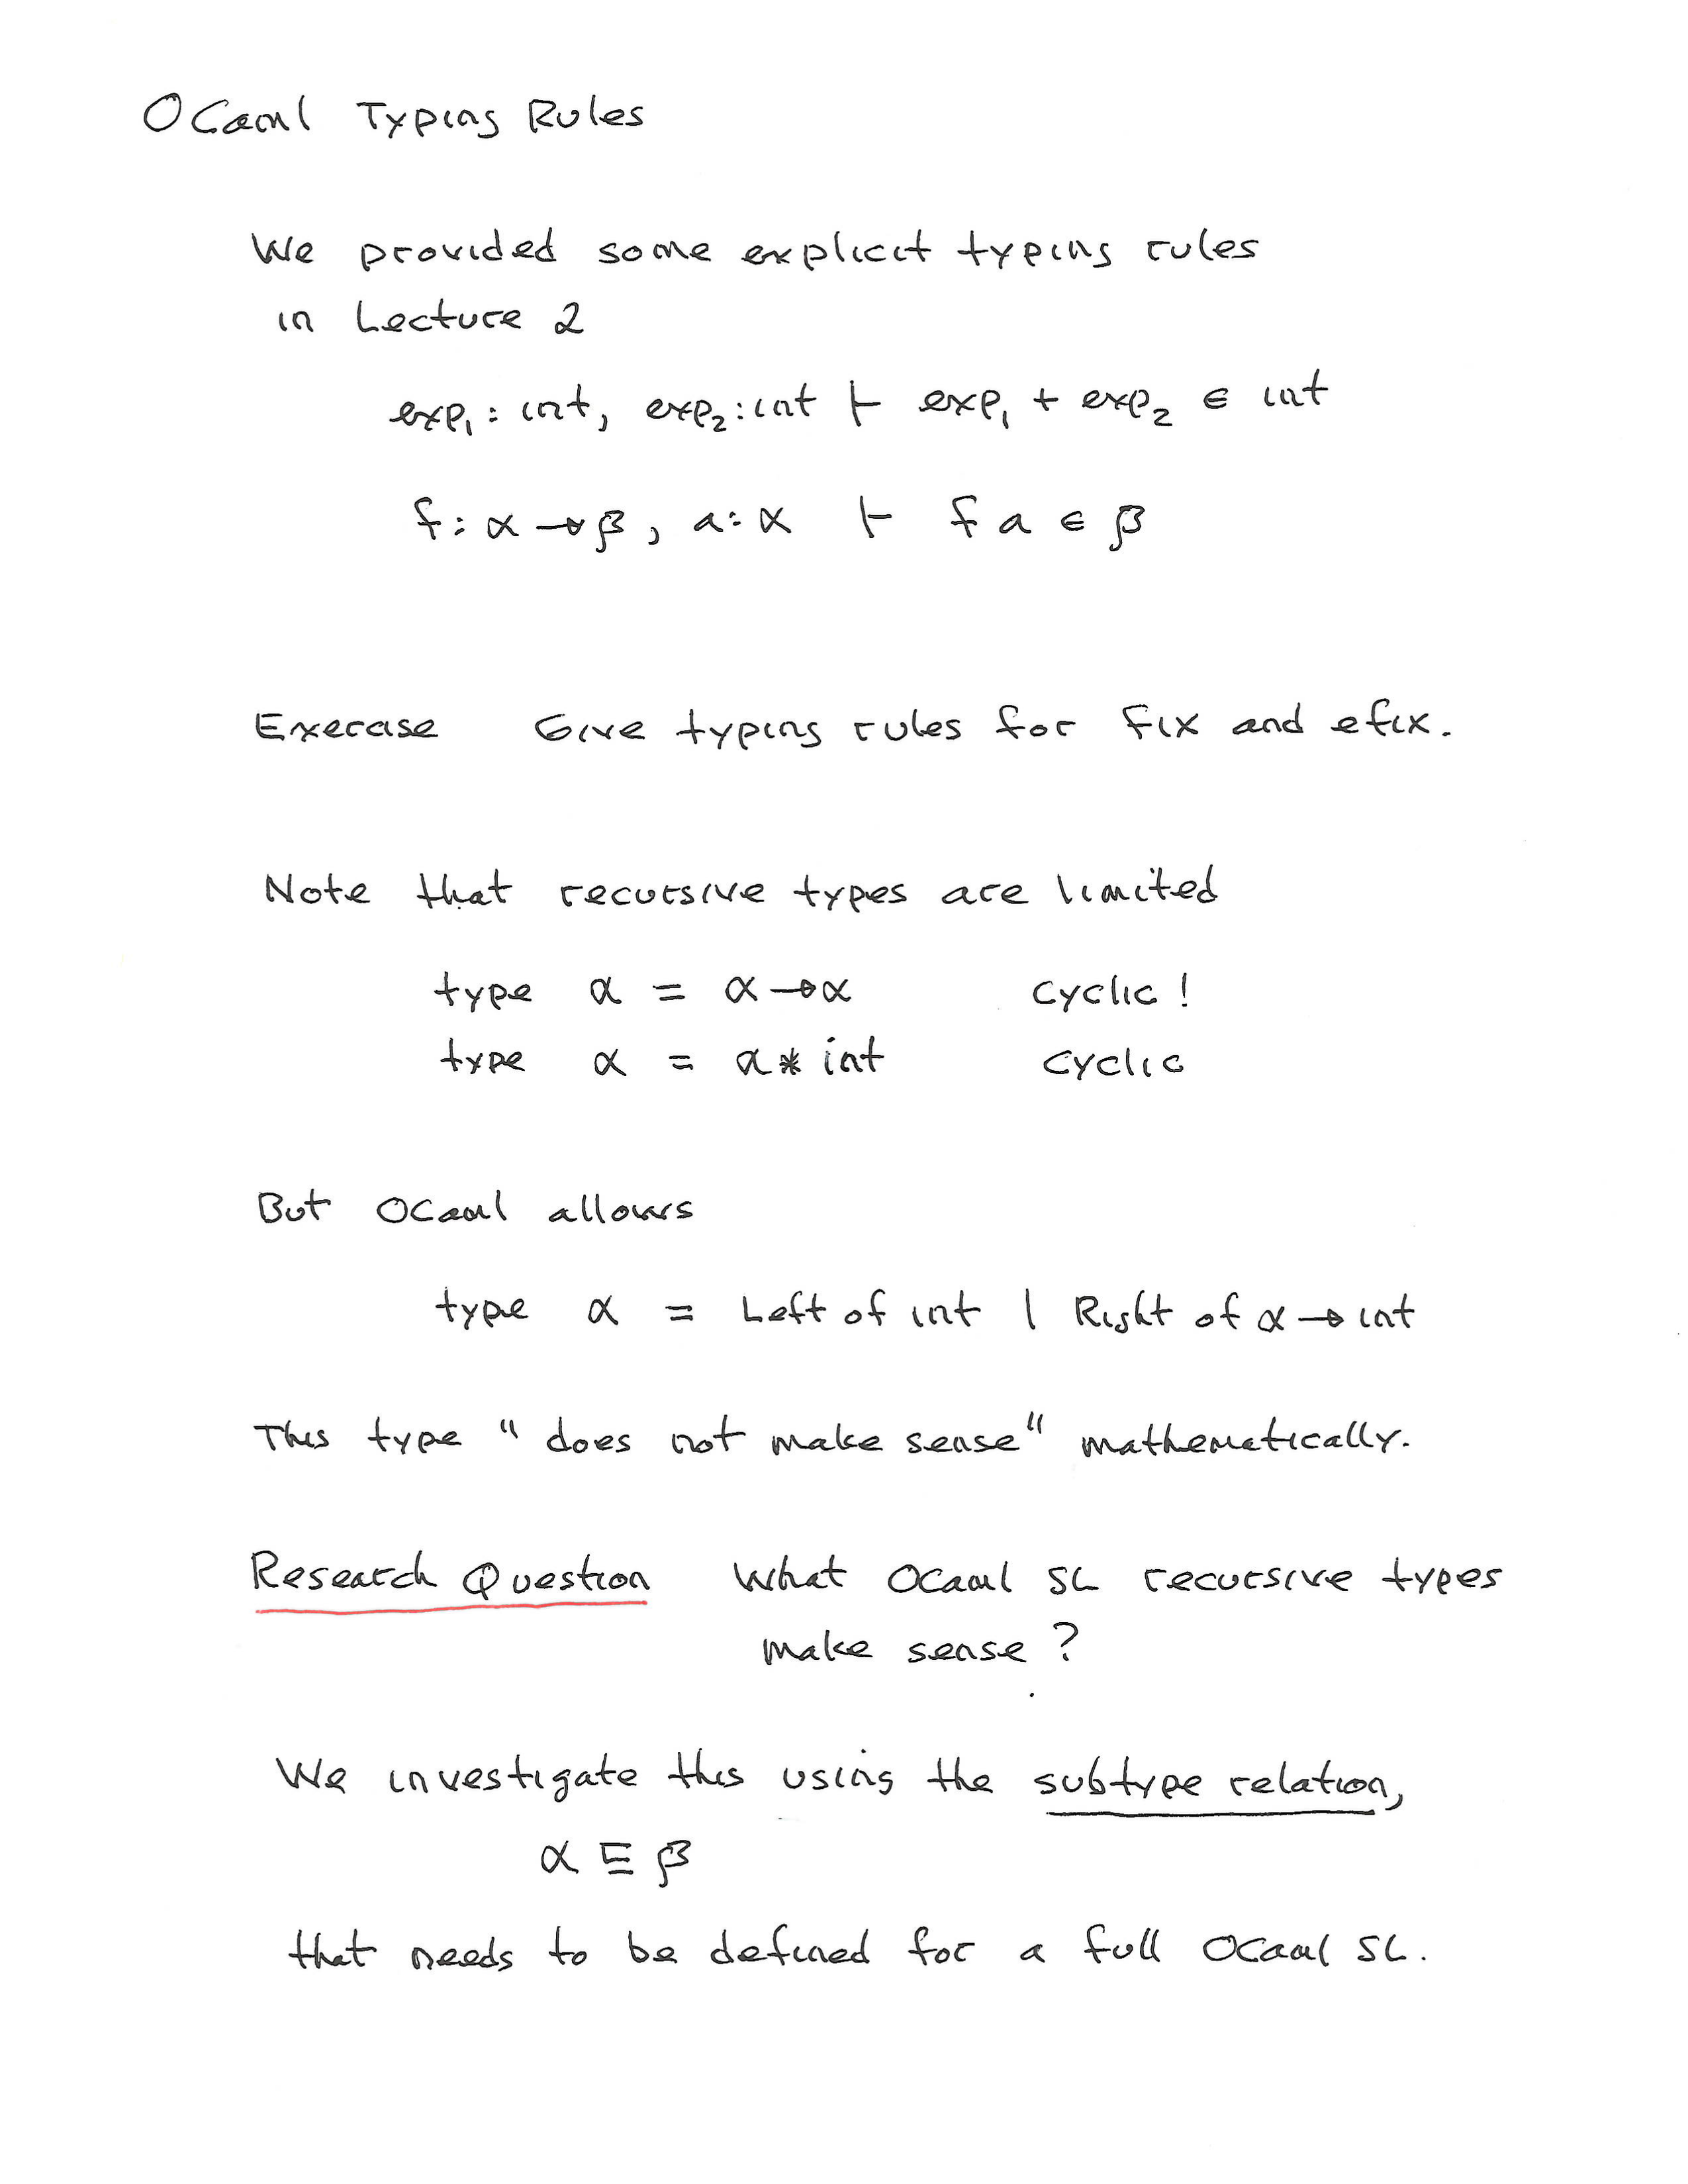 OCaml Typing Rules
We provided some explicit typing rules
in Lecture 2
exp₁ : int, exp₂ : int ⊢ exp₁ + exp₂ ∈ int
f : α → β, a : α ⊢ f a ∈ β
Exercise Give typing rules for fix and efix.
Note that recursive types are limited
type α = α → α cyclic!
type α = α * int cyclic
But OCaml allows
type α = Left of int | Right of α → int
This type "does not make sense" mathematically.
Research Question What OCaml SL recursive types
make sense?
We investigate this using the subtype relation,
α ⊑ β
that needs to be defined for a full OCaml SL.